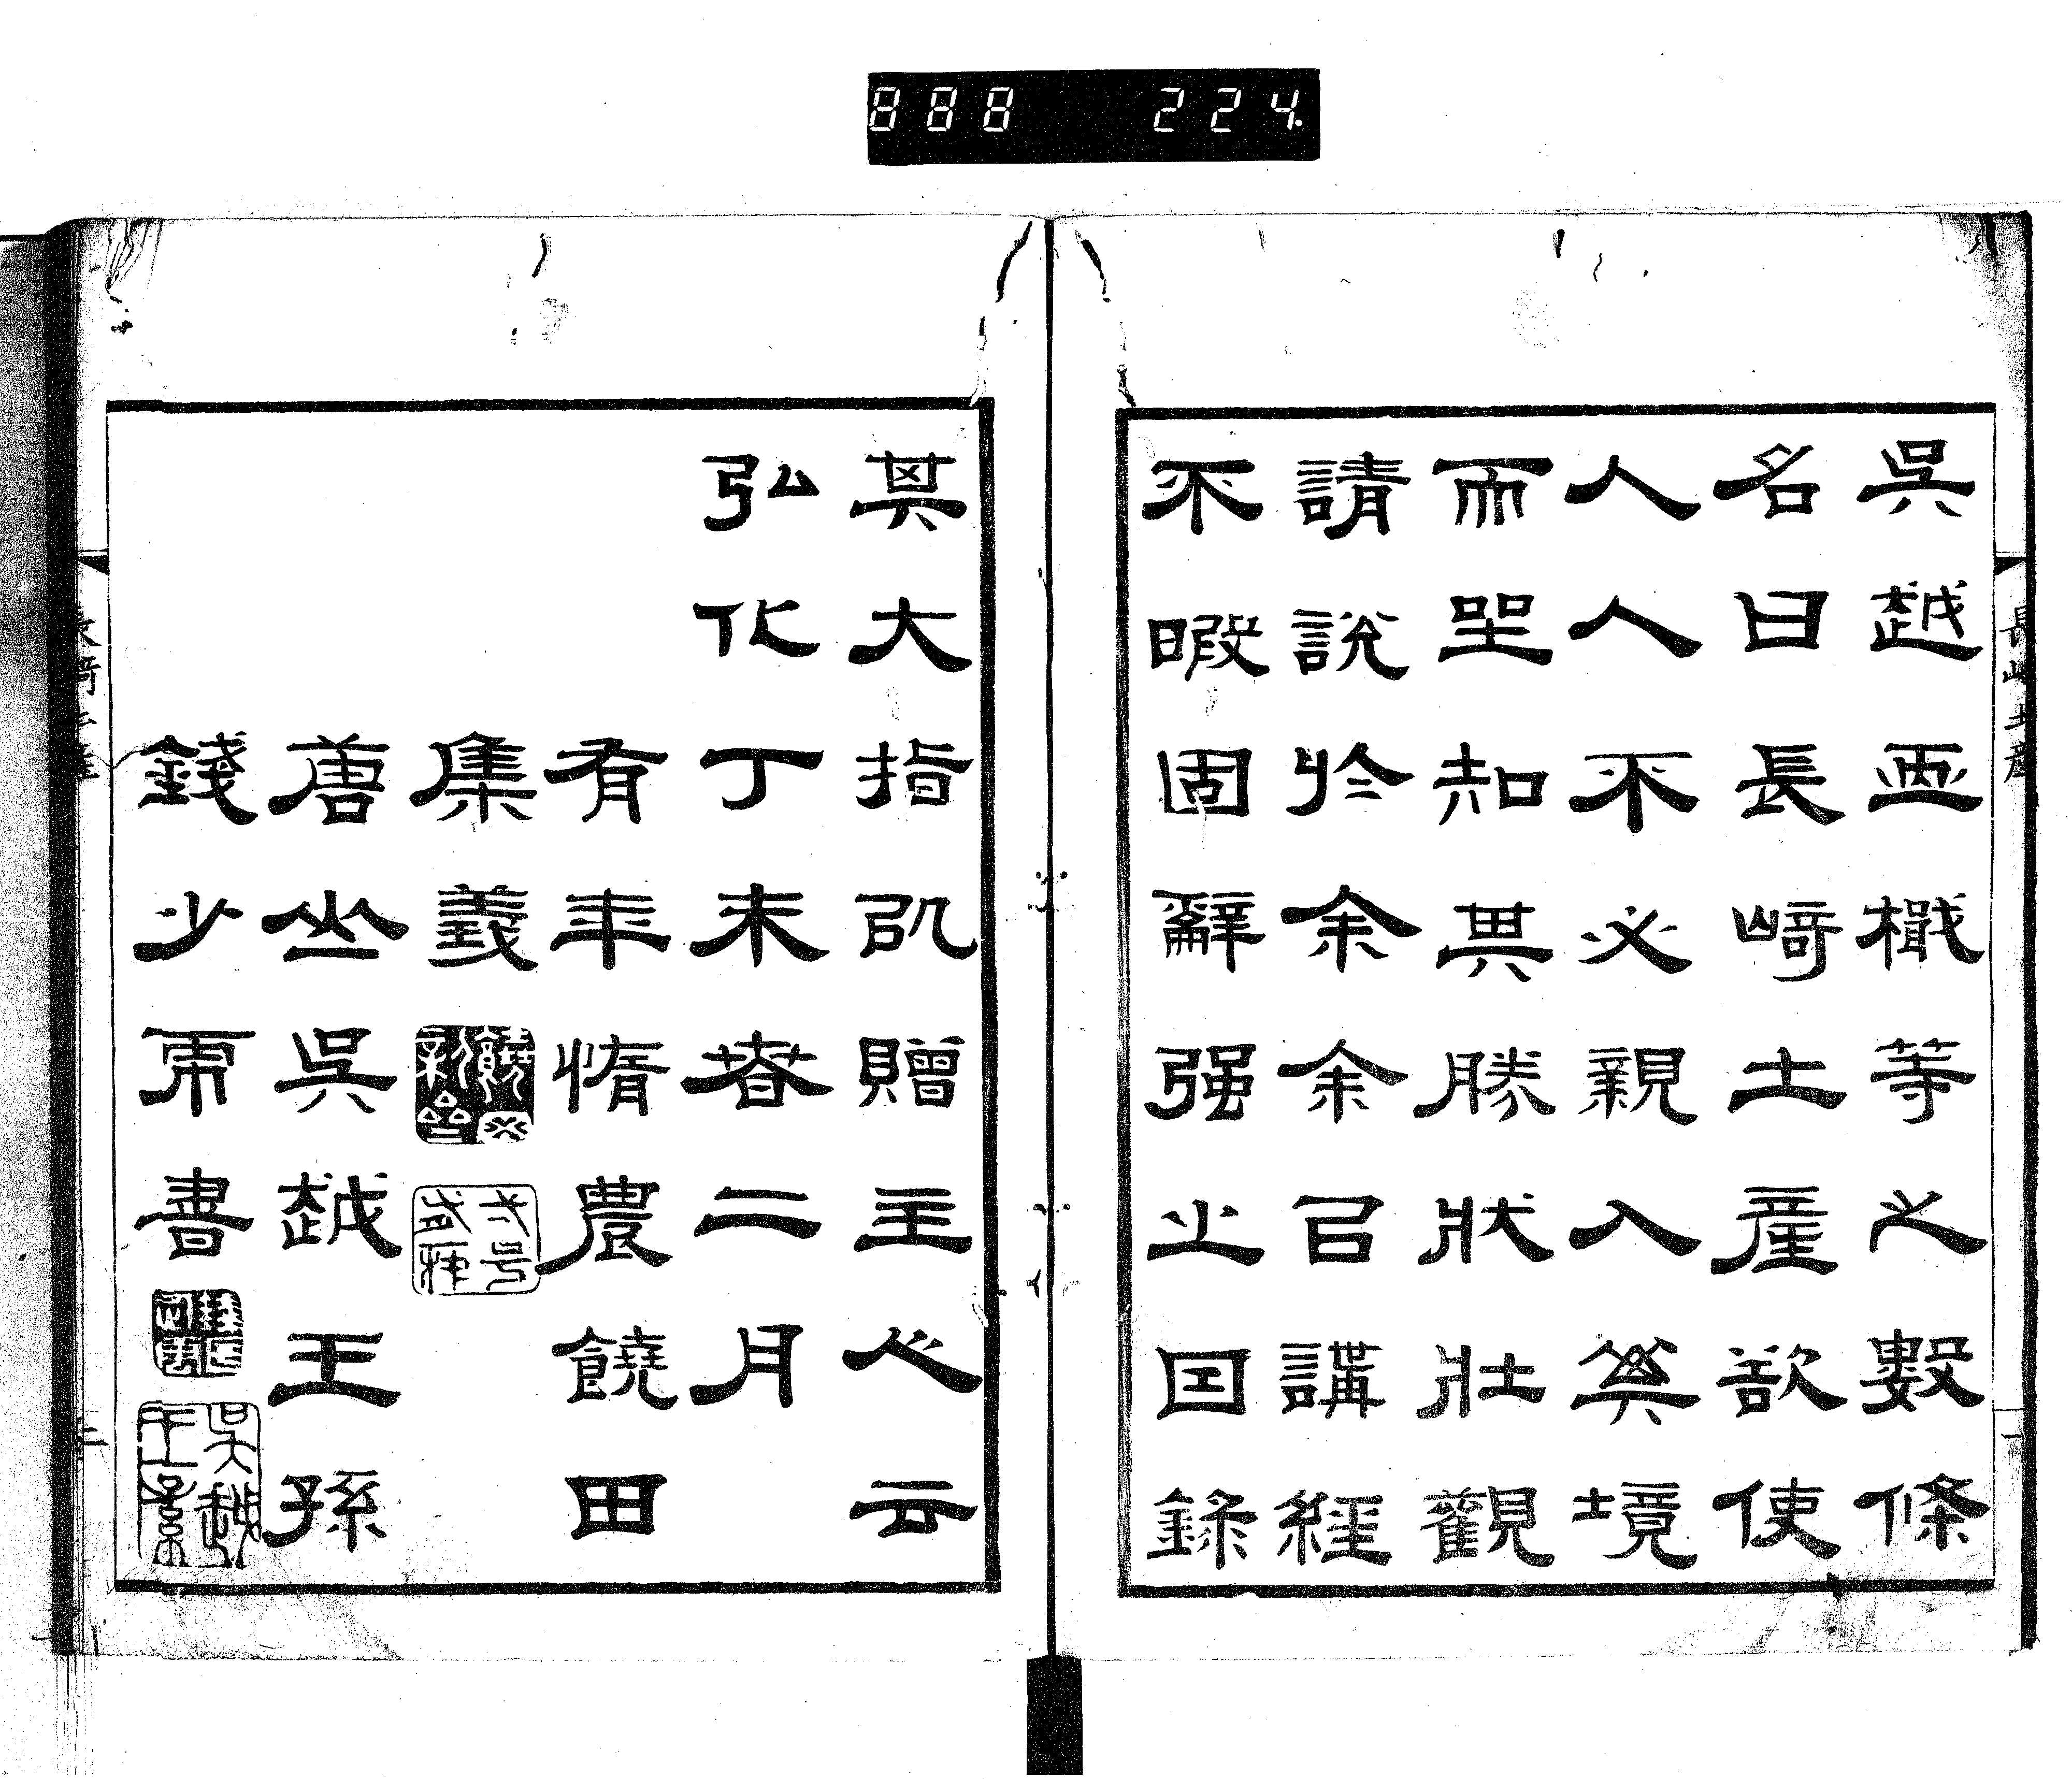 吳越檝等之數條
名曰長崎土産欲使
人人不必親入其境
而坐知其勝狀壯觀
請說於余余以講經
不暇固辭强之因錄
其大指以贈主人云
弘化丁未春二月
有年惰農饒田
集義
唐山吳越王孫
錢少虎書
吳越王孫
長崎土産
一
長崎土産
二
888 224